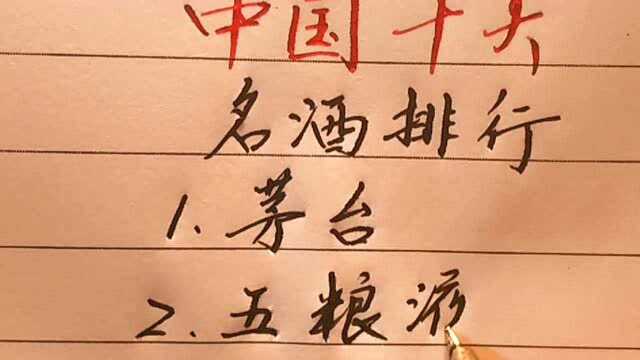 中国十大
名酒排行
1. 茅台
2. 五粮液